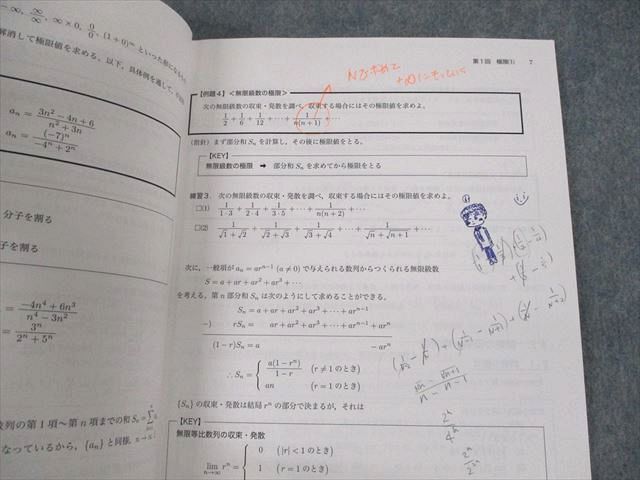 -∞, ∞/∞, ∞×0, 0/0, (1+0)^∞ といった形になるもの
解消して極限値を求める。以下，具体例を通して，
a_n = (3n² − 4n + 6)/(n² + 3n)
a_n = (−7)^n/(−4^n + 2^n)
分子を割る
子を割る
= (−4n⁴ + 6n³)/(n⁴ − 3n²)
= 3^n/(2^n + 5^n)
数列の第1項〜第n項までの和 S_n = Σ
なっているから，{a_n} と同様，n→
第1回 極限(1) 7
Nで求めて
+∞にもっていく
【例題4】＜無限級数の極限＞
次の無限級数の収束・発散を調べ，収束する場合にはその極限値を求めよ。
1/2 + 1/6 + 1/12 + ⋯ + 1/(n(n+1)) + ⋯
(指針) まず部分和 S_n を計算し，その後に極限値をとる。
【KEY】
無限級数の極限 ➡ 部分和 S_n を求めてから極限をとる
練習3. 次の無限級数の収束・発散を調べ，収束する場合にはその極限値を求めよ。
□(1) 1/(1·3) + 1/(2·4) + 1/(3·5) + ⋯ + 1/(n(n+2)) + ⋯
□(2) 1/(√1+√2) + 1/(√2+√3) + 1/(√3+√4) + ⋯ + 1/(√n+√(n+1)) + ⋯
次に，一般項が a_n = ar^(n−1) (a ≠ 0) で与えられる数列からつくられる無限級数
S = a + ar + ar² + ar³ + ⋯
を考える。第 n 部分和 S_n は次のようにして求めることができる。
S_n = a + ar + ar² + ar³ + ⋯ + ar^(n−1)
−) rS_n = ar + ar² + ar³ + ⋯ + ar^(n−1) + ar^n
(1−r)S_n = a − ar^n
∴ S_n = { a(1−r^n)/(1−r) (r ≠ 1 のとき)
an (r = 1 のとき)
{S_n} の収束・発散は結局 r^n の部分で決まるが，それは
【KEY】
無限等比数列の収束・発散
0 (|r| < 1 のとき)
lim_(n→∞) r^n = { 1 (r = 1 のとき)
2^n/4^n
2^n/2^2n